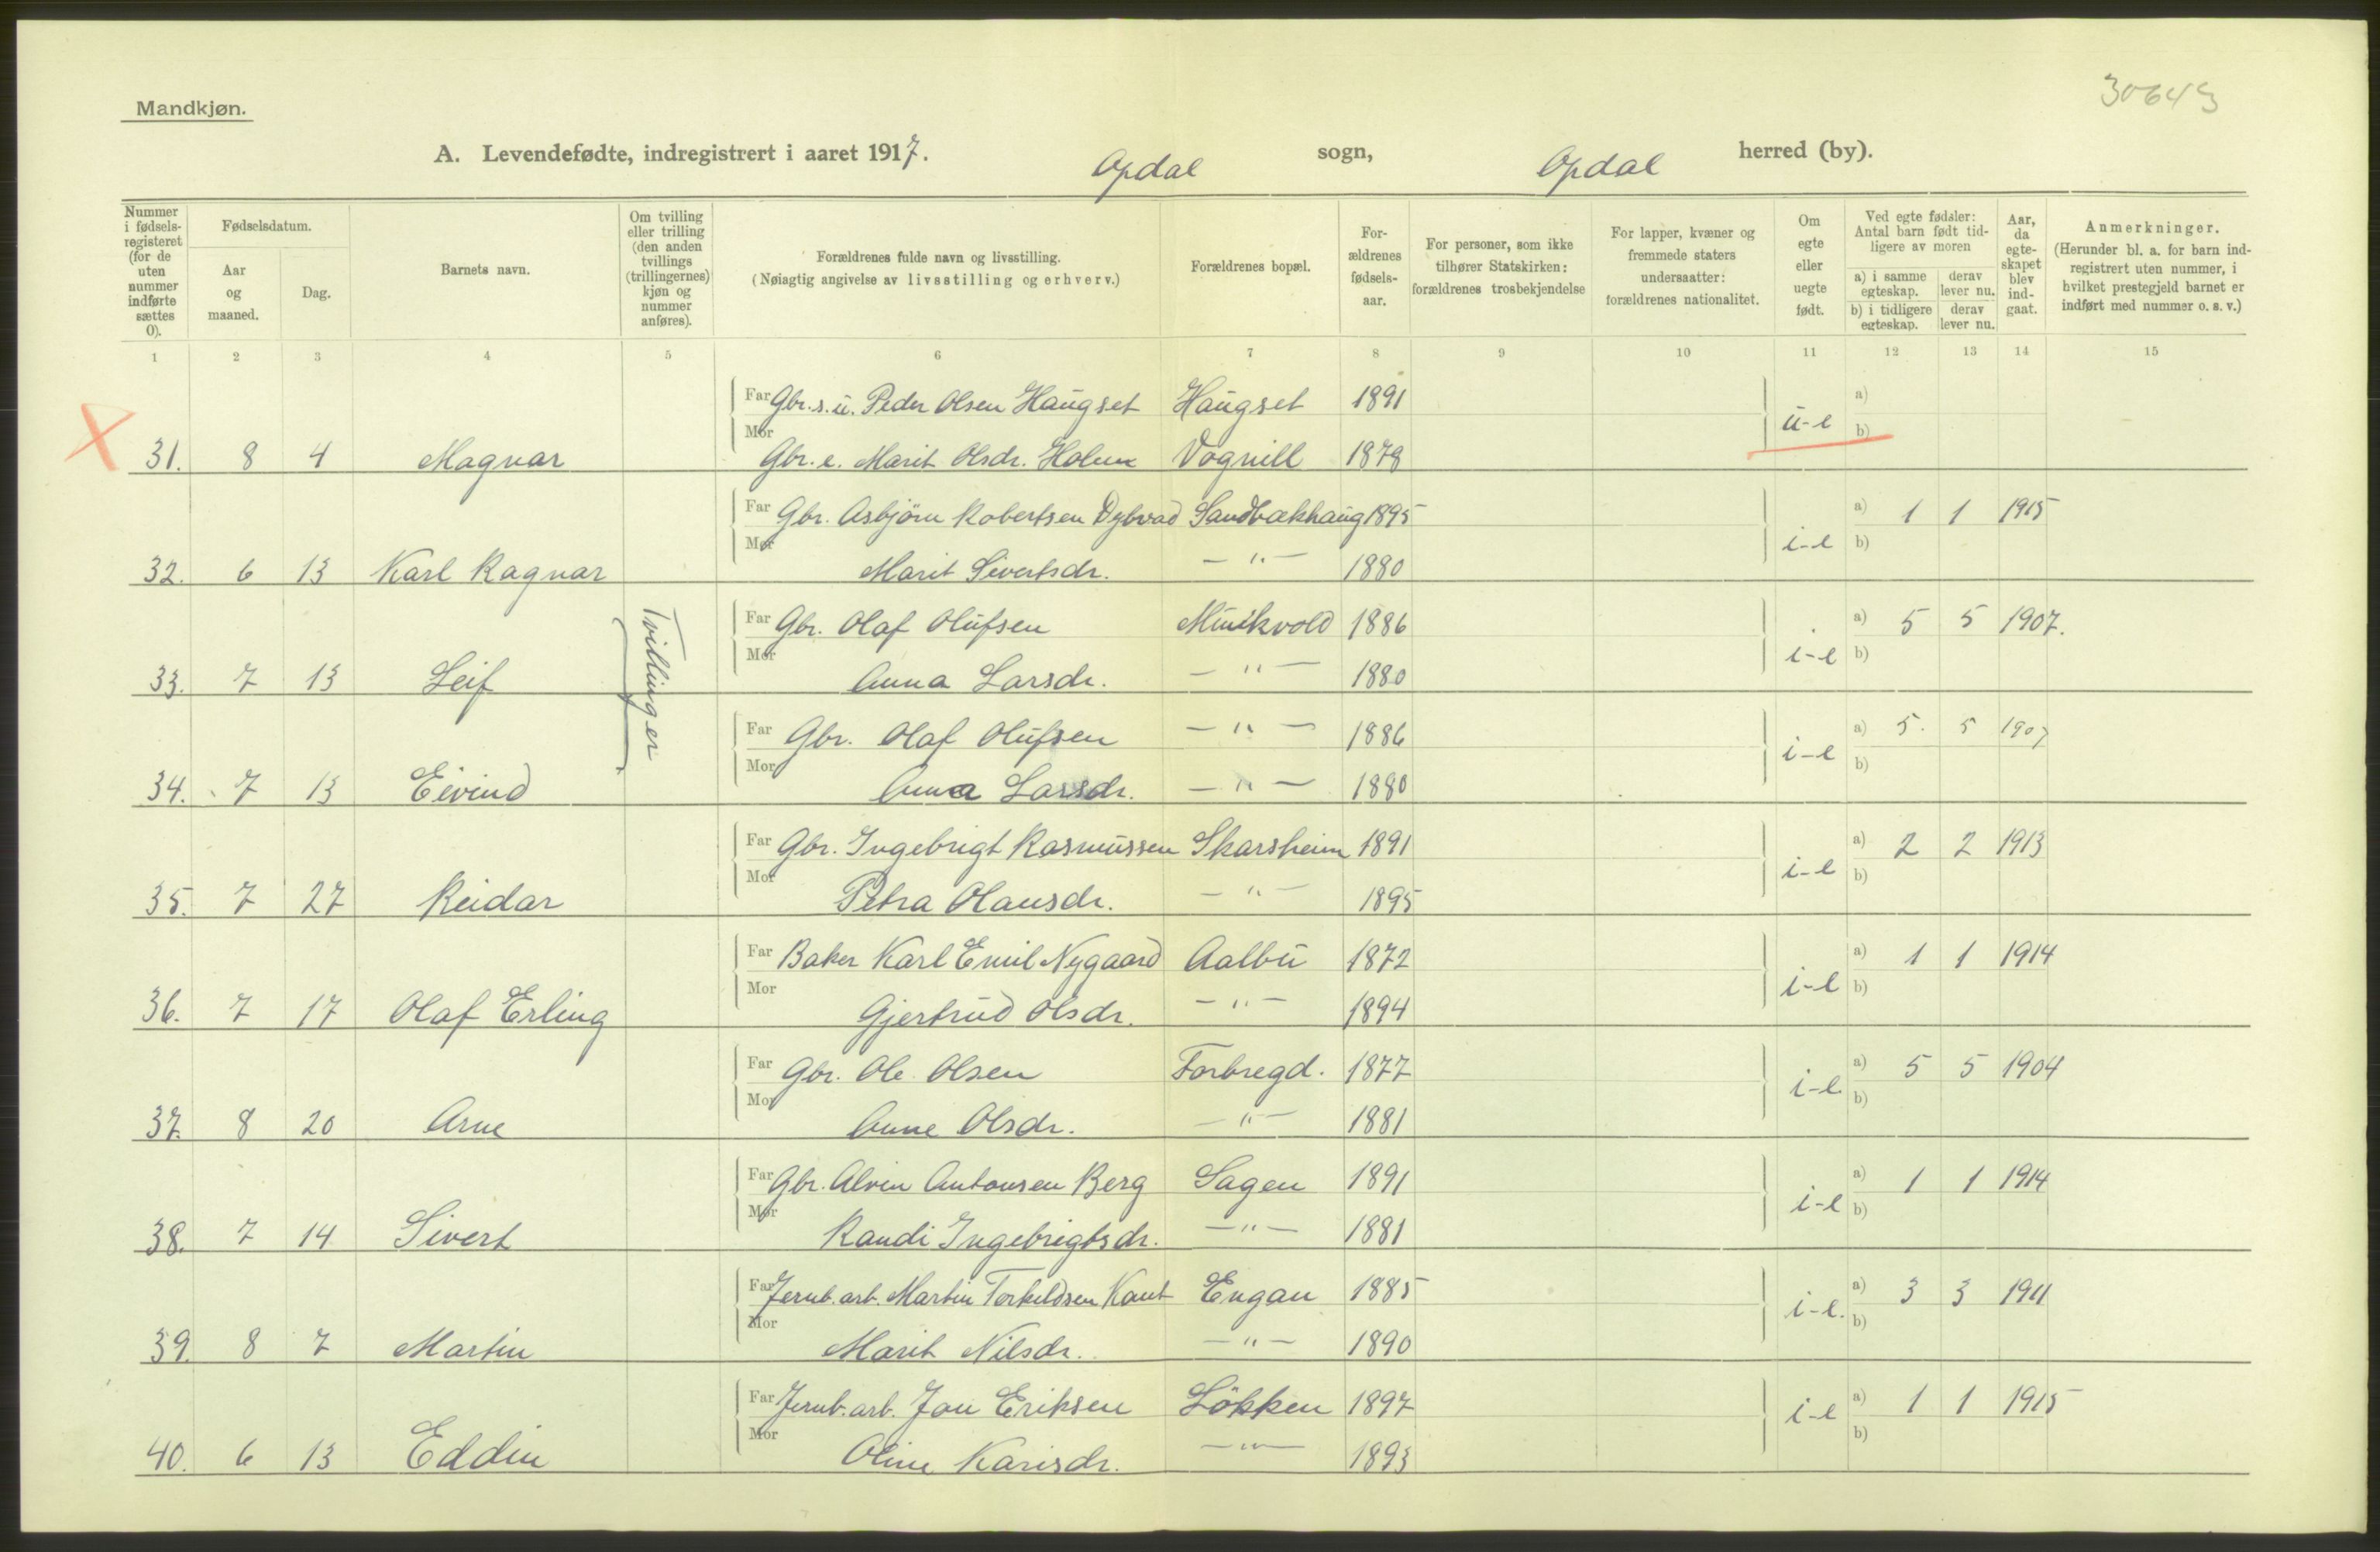 30643
Mandkjøn.
A. Levendefødte, indregistrert i aaret 1917. Opdal sogn, Opdal herred (by).
Nummer i fødselsregisteret (for de uten nummer indførte sættes 0).
Fødselsdatum.
Aar og maaned.
Dag.
Barnets navn.
Om tvilling eller trilling (den anden tvillings (trillingernes) kjøn og nummer anføres).
Forældrenes fulde navn og livsstilling.
(Nøiagtig angivelse av livsstilling og erhverv.)
Forældrenes bopæl.
Forældrenes fødselsaar.
For personer, som ikke tilhører Statskirken: forældrenes trosbekjendelse
For lapper, kvæner og fremmede staters undersaatter: forældrenes nationalitet.
Om egte eller uegte født.
Ved egte fødsler: Antal barn født tidligere av moren
a) i samme egteskap. derav lever nu.
b) i tidligere egteskap. derav lever nu.
Aar, da egteskapet blev indgaat.
Anmerkninger.
(Herunder bl. a. for barn indregistrert uten nummer, i hvilket prestegjeld barnet er indført med nummer o. s. v.)
1 2 3 4 5 6 7 8 9 10 11 12 13 14 15
Far Gbr. s. u. Peder Olsen Haugset Haugset 1891 a)
31. 8 4 Magnar Mor Gbr. e. Marit Olsdr. Holum Vognill 1878 u-e b)
Far Gbr. Asbjörn Robertsen Dybvad Sandbækhaug 1895 a) 1 1 1915
32. 6 13 Karl Ragnar Mor Marit Sivertsdr. - " - 1880 i-e b)
Tvillinger
Far Gbr. Olaf Olufsen Munkvold 1886 a) 5 5 1907.
33. 7 13 Leif Mor Anna Larsdr. - " - 1880 i-e b)
Far Gbr. Olaf Olufsen - " - 1886 a) 5. 5 1907
34. 7 13 Eivind Mor Anna Larsdr. - " - 1880 i-e b)
Far Gbr. Ingebrigt Rasmussen Skarsheim 1891 a) 2 2 1913
35. 7 27 Reidar Mor Petra Olausdr. - " - 1895 i-e b)
Far Baker Karl Emil Nygaard Aalbu 1872 a) 1 1 1914
36. 7 17 Olaf Erling Mor Gjertrud Olsdr. - " - 1894 i-e b)
Far Gbr. Ole Olsen Forbregd. 1877 a) 5 5 1904
37. 8 20 Arne Mor Anne Olsdr. - " - 1881 i-e. b)
Far Gbr. Alvin Antonsen Berg Sagen 1891 a) 1 1 1914
38. 7 14 Sivert Mor Randi Ingebrigtsdr. - " - 1881 i-e b)
Far Jernb. arb. Martin Torkildsen Kant Engan 1885 a) 3 3 1911
39. 8 7 Martin Mor Marit Nilsdr. - " - 1890 i-e. b)
Far Jernb. arb. Jon Eriksen Lökken 1897 a) 1 1 1915
40. 6 13 Eddin Mor Oline Karisdr. - " - 1893 i-e b)